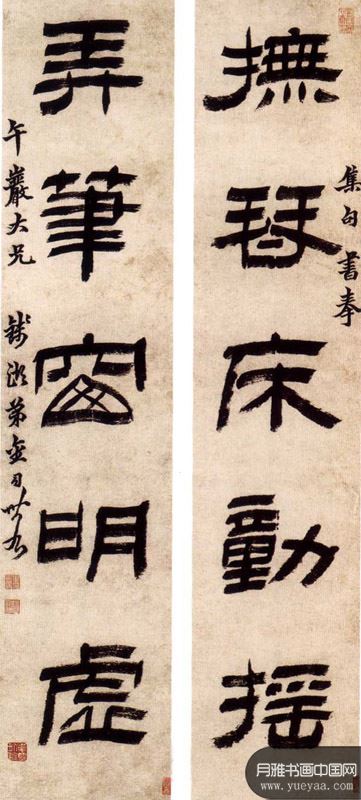 集句書奉
撫琴床動搖
弄筆窗明虛
午巖大兄
弟
月雅书画中国网
www.yueyaa.com